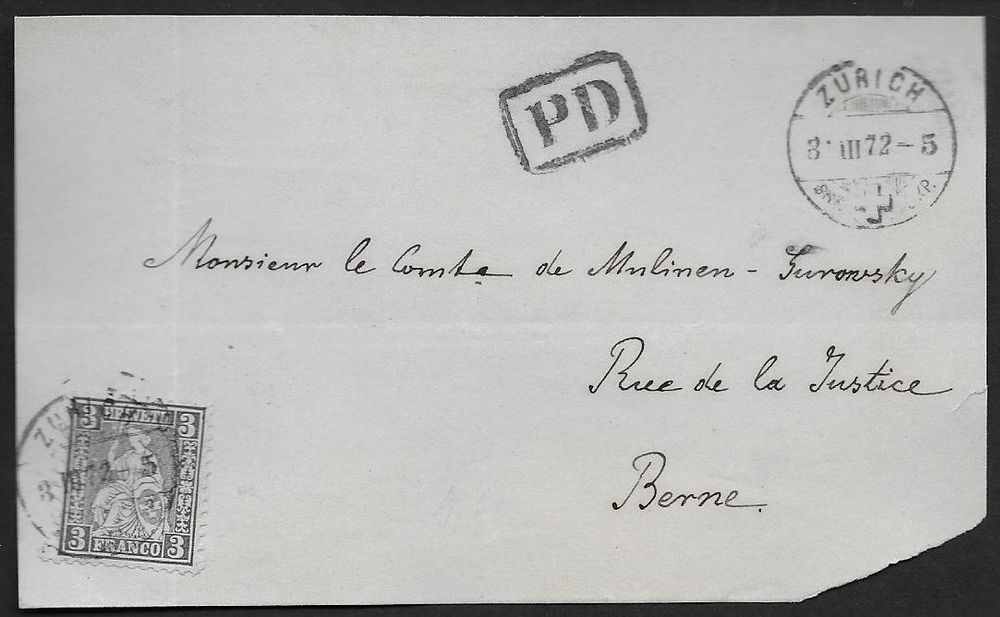 PD
ZÜRICH
3 III 72 - 5
EXP.
Monsieur le Comte de Mulinen - Gurowsky
Rue de la Justice
Berne.
3 HELVETIA 3
72 - 5
3 FRANCO 3